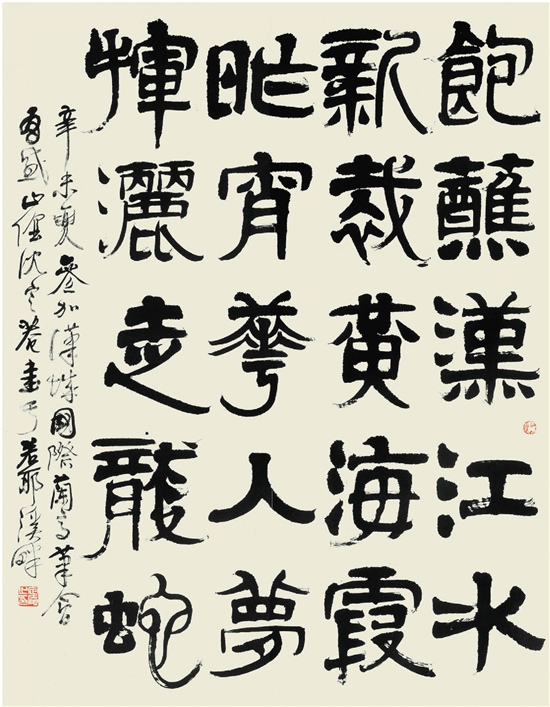 飽蘸漢江水
新裁黃海霞
昨宵華人夢
揮灑走龍蛇
辛未夏參加漢城國際蘭亭筆會
有感山陰沈定菴書于若耶溪畔